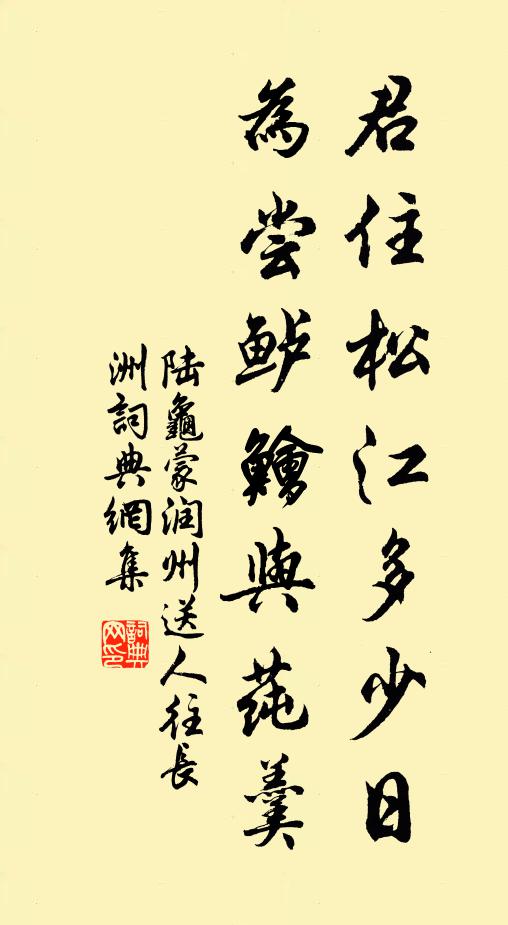 君住松江多少日
為尝鲈鱠與莼羹
陆龜蒙润州送人往長
洲詞典網集
詞典网印